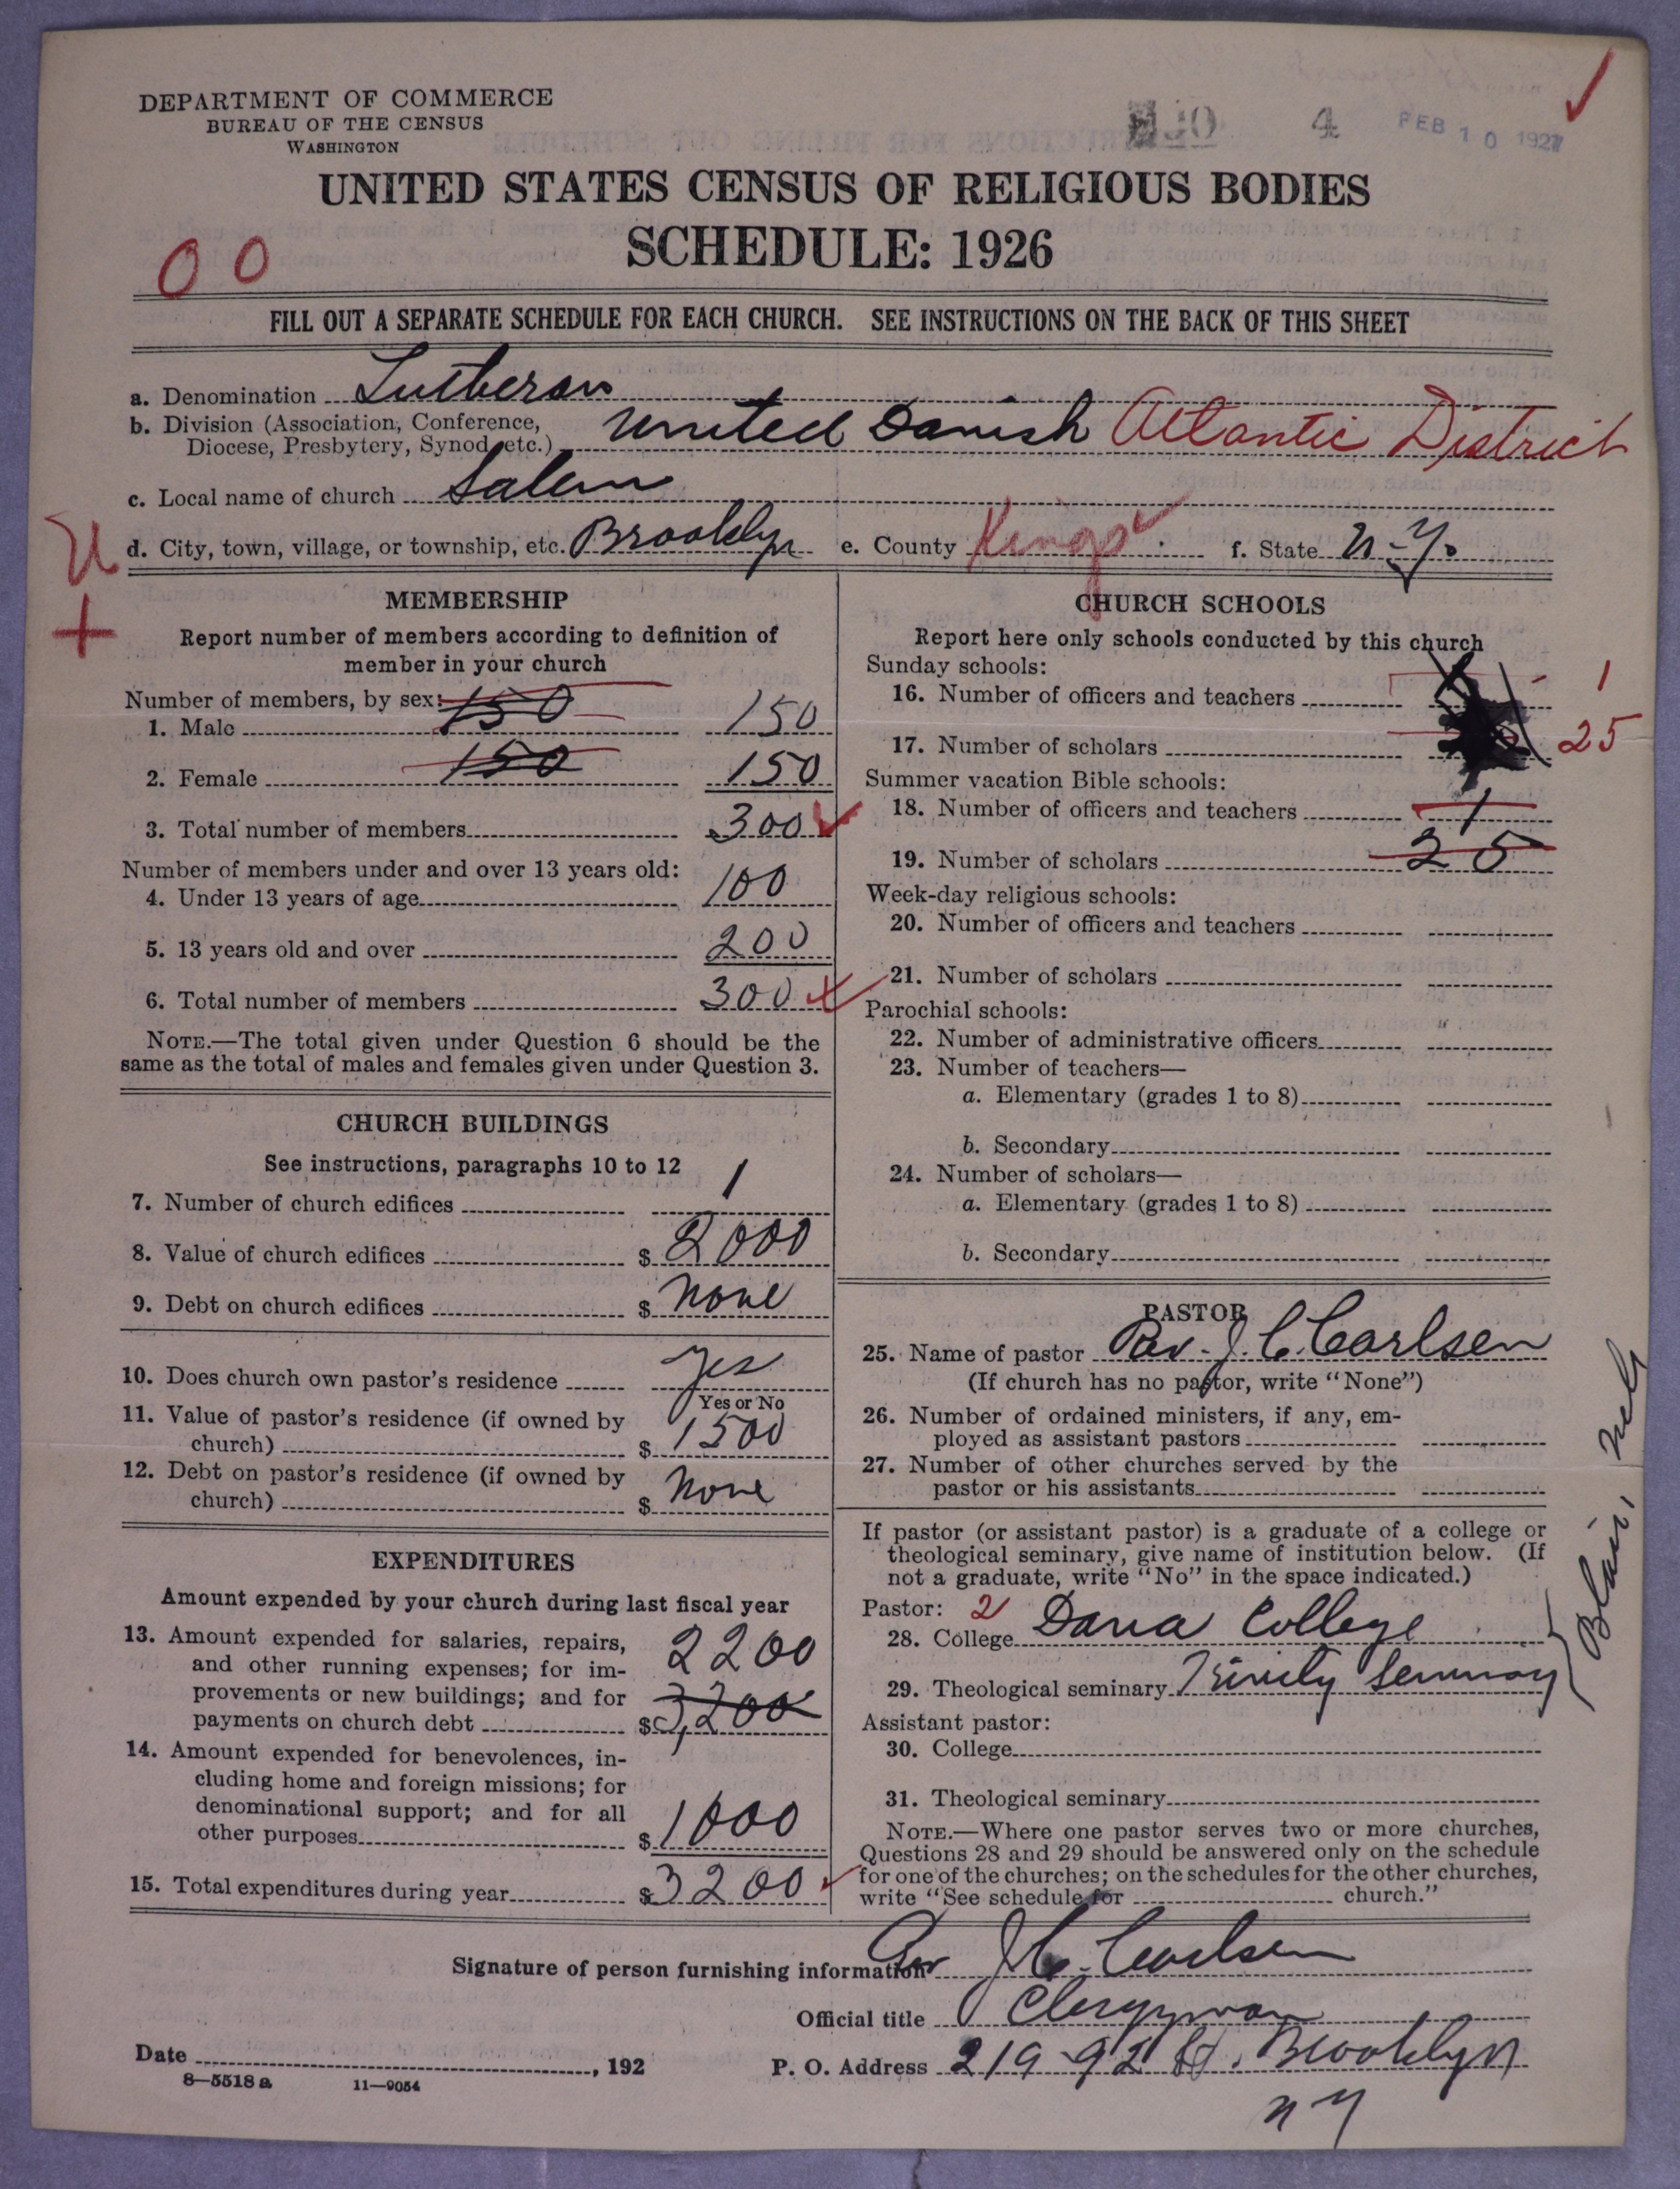 DEPARTMENT OF COMMERCE
BUREAU OF THE CENSUS
WASHINGTON
4 FEB 10 1927
UNITED STATES CENSUS OF RELIGIOUS BODIES
SCHEDULE: 1926
00
FILL OUT A SEPARATE SCHEDULE FOR EACH CHURCH. SEE INSTRUCTIONS ON THE BACK OF THIS SHEET
a. Denomination Lutheran
b. Division (Association, Conference, Diocese, Presbytery, Synod, etc.) United Danish Atlantic District
c. Local name of church Salem
d. City, town, village, or township, etc. Brooklyn e. County Kings f. State N.Y.
MEMBERSHIP
Report number of members according to definition of
member in your church
Number of members, by sex:
1. Male 150 150
2. Female 150 150
3. Total number of members 300
Number of members under and over 13 years old:
4. Under 13 years of age 100
5. 13 years old and over 200
6. Total number of members 300
NOTE.—The total given under Question 6 should be the
same as the total of males and females given under Question 3.
CHURCH BUILDINGS
See instructions, paragraphs 10 to 12
7. Number of church edifices 1
8. Value of church edifices $ 2000
9. Debt on church edifices $ None
10. Does church own pastor's residence Yes
Yes or No
11. Value of pastor's residence (if owned by
church) $ 1500
12. Debt on pastor's residence (if owned by
church) $ None
EXPENDITURES
Amount expended by your church during last fiscal year
13. Amount expended for salaries, repairs,
and other running expenses; for im- 2200
provements or new buildings; and for
payments on church debt $ 3,200
14. Amount expended for benevolences, in-
cluding home and foreign missions; for
denominational support; and for all
other purposes $ 1000
15. Total expenditures during year $ 3200
CHURCH SCHOOLS
Report here only schools conducted by this church
Sunday schools:
16. Number of officers and teachers 1
17. Number of scholars 25
Summer vacation Bible schools:
18. Number of officers and teachers 1
19. Number of scholars 25
Week-day religious schools:
20. Number of officers and teachers
21. Number of scholars
Parochial schools:
22. Number of administrative officers
23. Number of teachers—
a. Elementary (grades 1 to 8)
b. Secondary
24. Number of scholars—
a. Elementary (grades 1 to 8)
b. Secondary
PASTOR
25. Name of pastor Rev. J. C. Carlsen
(If church has no pastor, write "None")
26. Number of ordained ministers, if any, em-
ployed as assistant pastors
27. Number of other churches served by the
pastor or his assistants
If pastor (or assistant pastor) is a graduate of a college or
theological seminary, give name of institution below. (If
not a graduate, write "No" in the space indicated.)
Pastor: 2
28. College Dana College
29. Theological seminary Trinity Seminary
Blair, Neb
Assistant pastor:
30. College
31. Theological seminary
NOTE.—Where one pastor serves two or more churches,
Questions 28 and 29 should be answered only on the schedule
for one of the churches; on the schedules for the other churches,
write "See schedule for church."
Signature of person furnishing information J. C. Carlsen
Official title Clergyman
Date , 192
P. O. Address 219-92 St. Brooklyn
N Y
8—5518 a 11—9054